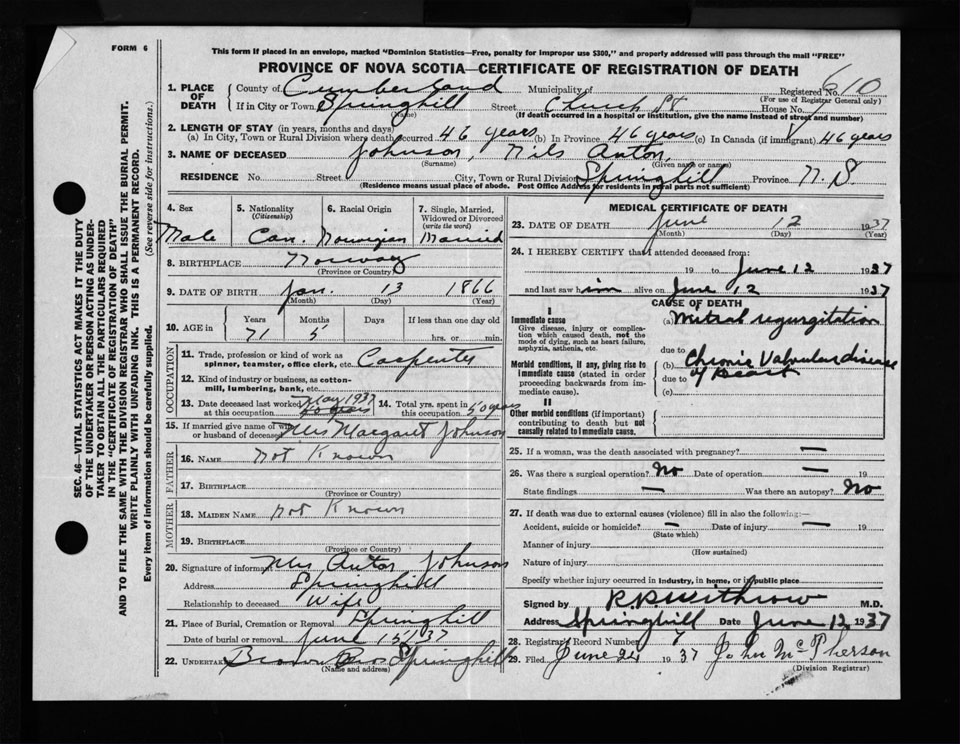 FORM 6
This form if placed in an envelope, marked "Dominion Statistics—Free, penalty for improper use $300," and properly addressed will pass through the mail "FREE"
PROVINCE OF NOVA SCOTIA—CERTIFICATE OF REGISTRATION OF DEATH
SEC. 46—VITAL STATISTICS ACT MAKES IT THE DUTY
OF THE UNDERTAKER OR PERSON ACTING AS UNDER-
TAKER TO OBTAIN ALL THE PARTICULARS REQUIRED
IN THE "CERTIFICATE OF REGISTRATION OF DEATH"
AND TO FILE THE SAME WITH THE DIVISION REGISTRAR WHO SHALL ISSUE THE BURIAL PERMIT.
WRITE PLAINLY WITH UNFADING INK. THIS IS A PERMANENT RECORD.
Every item of information should be carefully supplied. (See reverse side for instructions.)
1. PLACE OF DEATH County of Cumberland Municipality of Registered No. 610
(For use of Registrar General only)
If in City or Town Springhill Street Church St House No.
(Name) (If death occurred in a hospital or institution, give the name instead of street and number)
2. LENGTH OF STAY (in years, months and days)
(a) In City, Town or Rural Division where death occurred 46 years (b) In Province 46 years (c) In Canada (if immigrant) 46 years
3. NAME OF DECEASED Johnson, Nils Anton
(Surname) (Given name or names)
RESIDENCE No. Street City, Town or Rural Division Springhill Province N.S.
(Residence means usual place of abode. Post Office Address for residents in rural parts not sufficient)
4. Sex Male
5. Nationality (Citizenship) Can.
6. Racial Origin Norwegian
7. Single, Married, Widowed or Divorced (write the word) Married
8. BIRTHPLACE Norway
(Province or Country)
9. DATE OF BIRTH Jan. 13 1866
(Month) (Day) (Year)
10. AGE in Years Months Days If less than one day old
71 5 hrs. or min.
OCCUPATION
11. Trade, profession or kind of work as spinner, teamster, office clerk, etc. Carpenter
12. Kind of industry or business, as cotton-mill, lumbering, bank, etc.
13. Date deceased last worked at this occupation May 1937
14. Total yrs. spent in this occupation 50 years
15. If married give name of wife or husband of deceased Mrs Margaret Johnson
FATHER
16. NAME not Known
17. BIRTHPLACE
(Province or Country)
MOTHER
18. MAIDEN NAME not Known
19. BIRTHPLACE
(Province or Country)
20. Signature of informant Mrs Anton Johnson
Address Springhill
Relationship to deceased Wife
21. Place of Burial, Cremation or Removal Springhill
Date of burial or removal June 15 1937
22. UNDERTAKER Brown Bros Springhill
(Name and address)
MEDICAL CERTIFICATE OF DEATH
23. DATE OF DEATH June 12 1937
(Month) (Day) (Year)
24. I HEREBY CERTIFY that I attended deceased from:
19 to June 12 1937
and last saw him alive on June 12 1937
CAUSE OF DEATH
I
Immediate cause
Give disease, injury or complication which caused death, not the mode of dying, such as heart failure, asphyxia, asthenia, etc.
(a) Mitral regurgitation
due to
Morbid conditions, if any, giving rise to immediate cause (stated in order proceeding backwards from immediate cause).
(b) Chronic Valvular disease
due to of heart
(c)
II
Other morbid conditions (if important) contributing to death but not causally related to immediate cause.
25. If a woman, was the death associated with pregnancy? —
26. Was there a surgical operation? No Date of operation — 19
State findings — Was there an autopsy? No
27. If death was due to external causes (violence) fill in also the following:—
Accident, suicide or homicide? — Date of injury — 19
(State which)
Manner of injury
(How sustained)
Nature of injury
Specify whether injury occurred in industry, in home, or in public place
Signed by R.P. Withrow M.D.
Address Springhill Date June 12 1937
28. Registrar's Record Number 7
29. Filed June 24 1937 John McPherson
(Division Registrar)